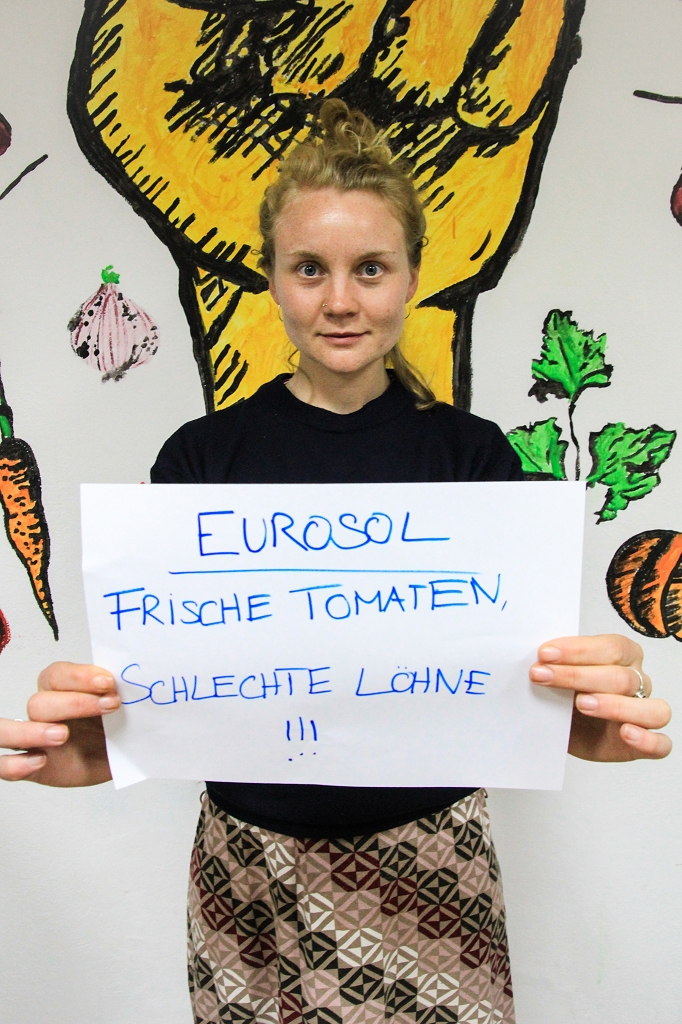 EUROSOL
FRISCHE TOMATEN,
SCHLECHTE LÖHNE
!!!